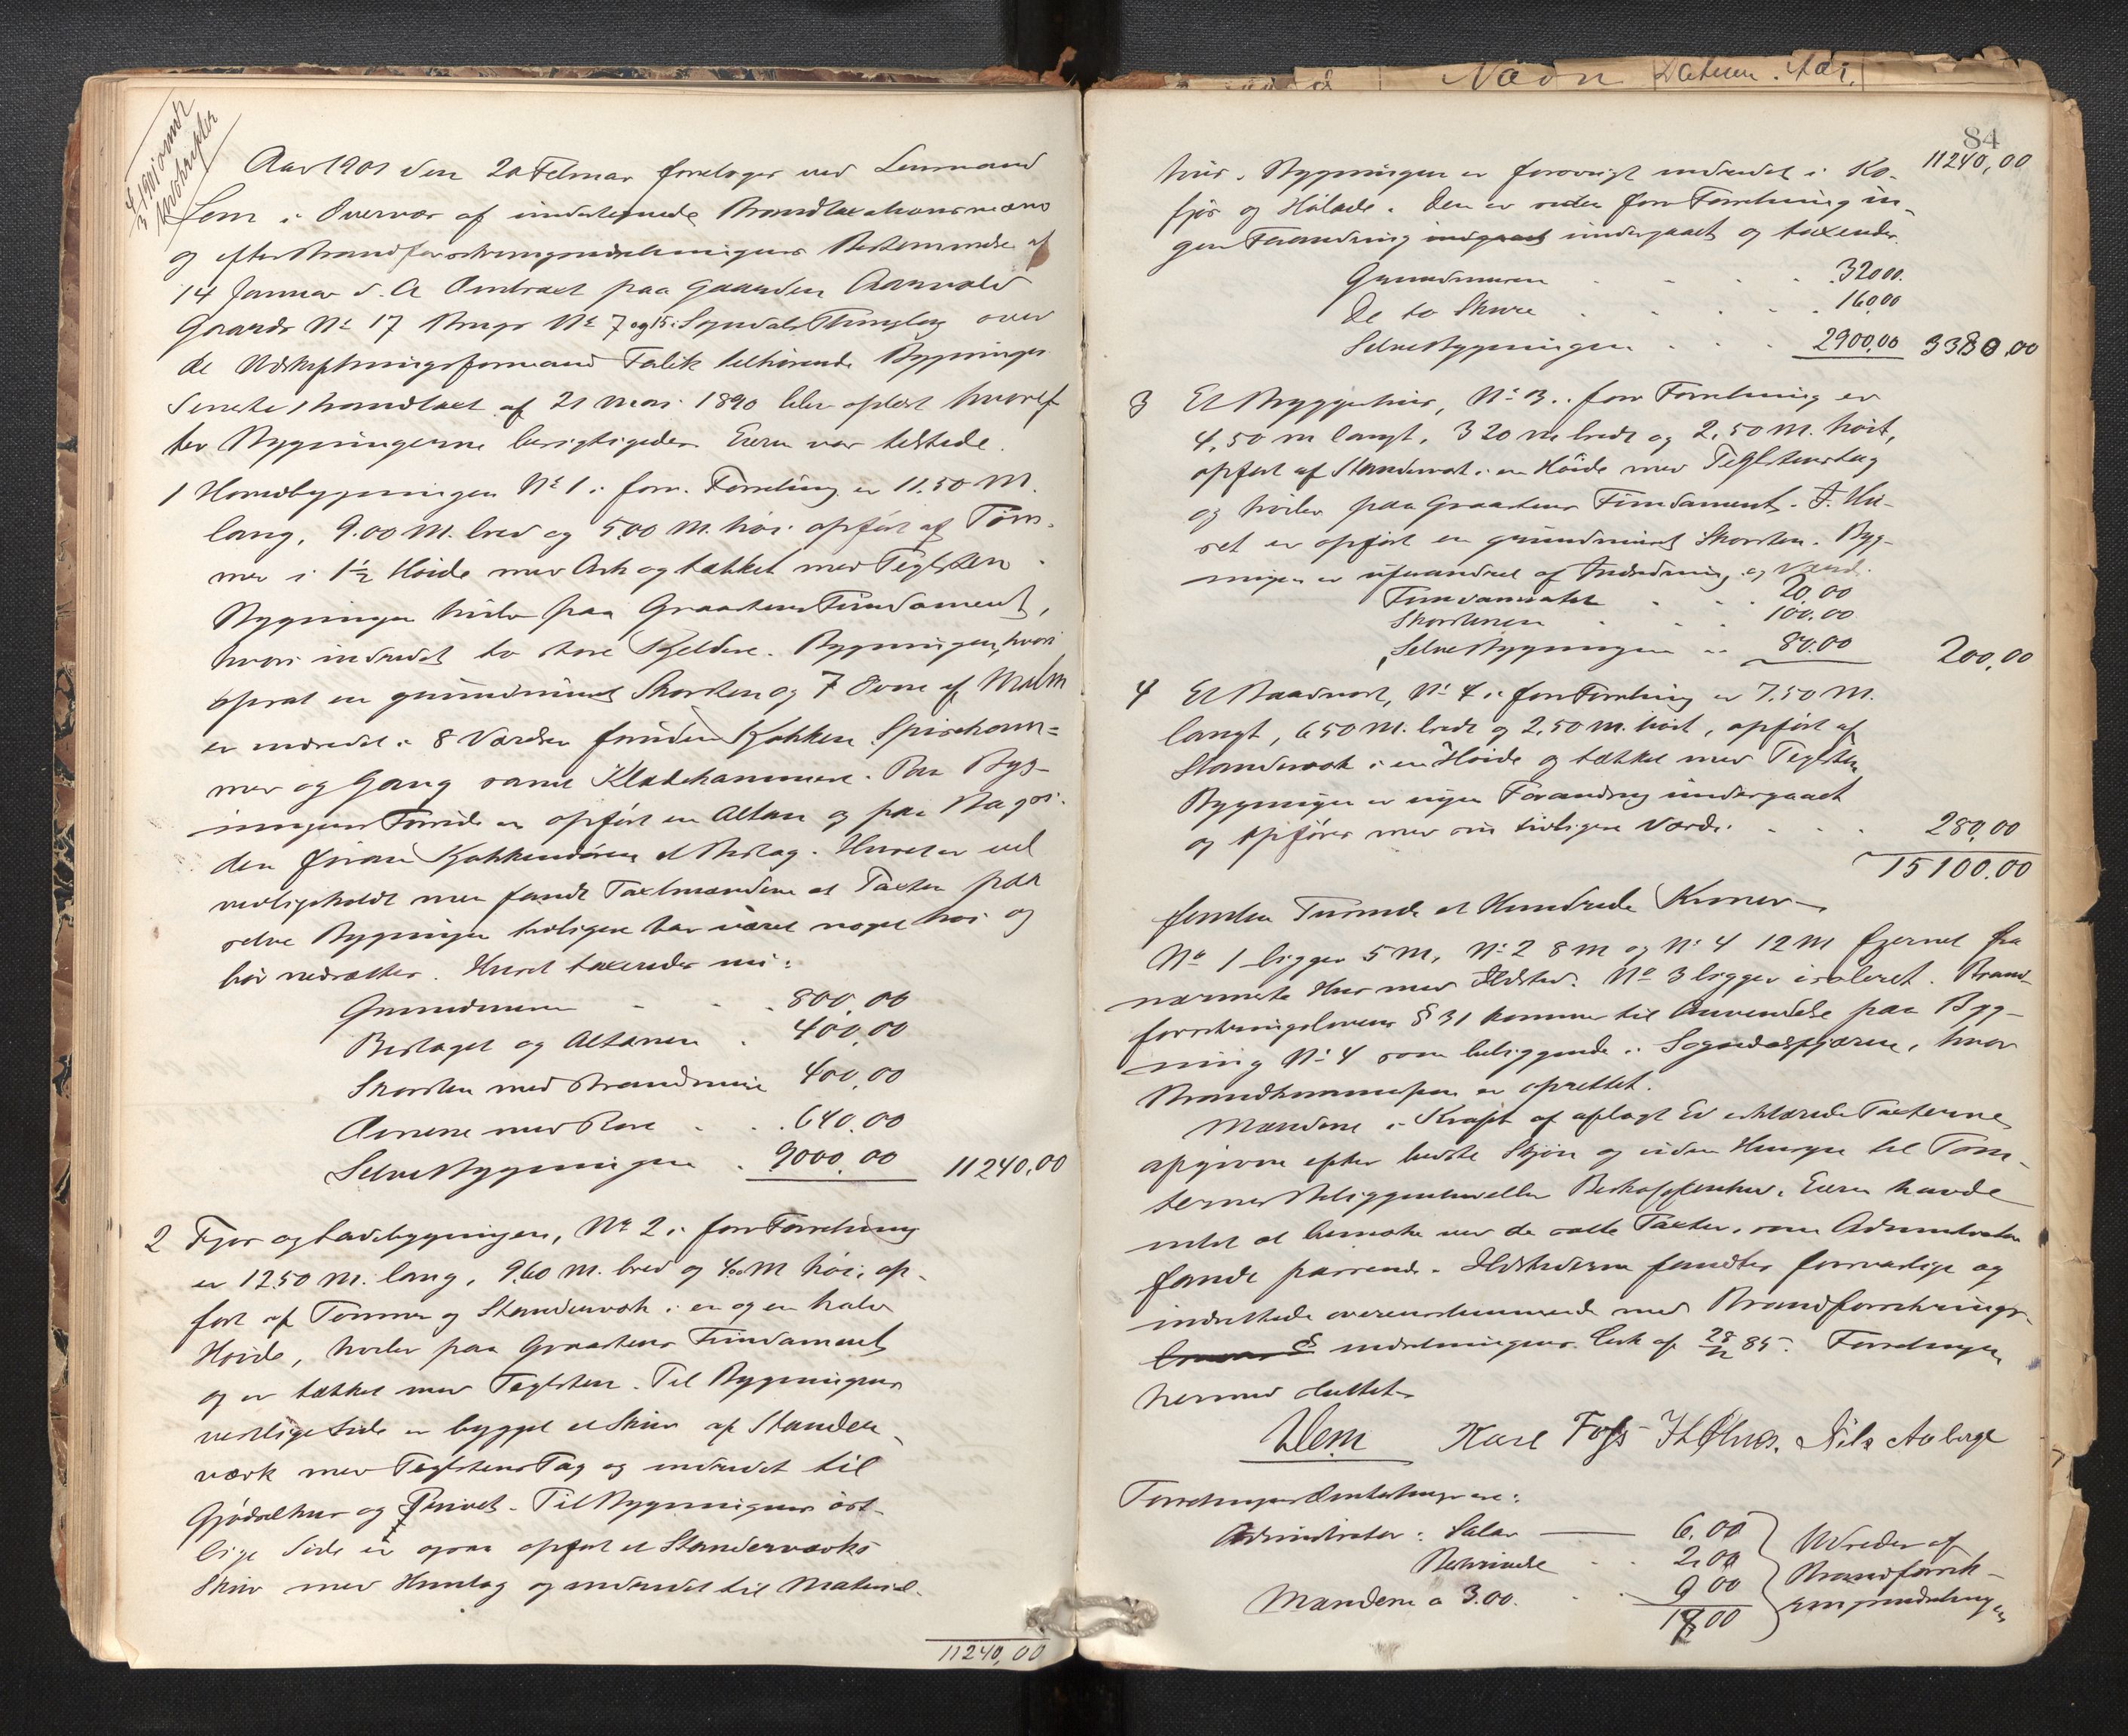 4/3 1901 sendt
Udskrifter
Aar 1901 den 20 Februar foretoges ved Lensmand
Lem i Overvær af undertegnede Brandtaxationsmænd
og efter Brandforsikringsindretningens Bestemmelse af
14 Januar d. A Omtaxt paa Gaarden Aarvold
Gaards No 17 Brugs No 7 og 15 i Sogndals Thinglag over
de Udskiftningsformand Falck tilhørende Bygninger
Seneste Brandtaxt af 21 Mai 1890 blev oplæst hvoref
ter Bygningerne besigtigedes. Eieren var tilstede.
1 Hovedbygningen No 1 i forr. Forretning er 11.50 M.
lang, 9.00 M. bred og 5.00 M. høi opført af Tøm-
mer i 1½ Høide med Ark og tækket med Teglsten.
Bygningen hviler paa Graastens Fundament,
hvori indredet to store Kjeldere. Bygningen, hvori
opsat en grundmuret Skorsten og 7 Ovne af Malm
er indredet i 8 Værelser foruden Kjøkken Spisekam=
mer og Gang samt Klædekammere. Paa Byg-
ningens Forside er opført en Altan og paa Bagsi-
den foran Kjøkkendøren et Bislag. Huset er vel
vedligeholdt men fandt Taxtmændene at Taxten paa
selve Bygningen tidligere har været noget høi og
bør nedsættes. Huset taxeredes nu:
Grundmuren - - 800,00
Bislaget og Altanen . 400,00
Skorsten med Brandmure 400,00
Ovnene med Rør . . 640,00
Selve Bygningen . 9000,00 11240,00
2 Fjøs og Ladebygningen, No 2 i forr Forretning
er 12.50 M. lang, 9.60 M. bred og 4,00 M høi, op-
ført af Tømmer og Stenderværk i en og en halv
Høide, hviler paa Graastens Fundament
og er tækket med Teglsten. Til Bygningens
vestlige Side er bygget et Skur af Stender-
værk med Teglstens Tag og indredet til
Gjødselhus og Privet. Til Bygningens øst-
lige Side er ogsaa opført et Stenderværks
Skur med Huntag og indredet til Material-
11240,00
Navn Datum. Aar.
84
hus. Bygningen er forøvrigt indredet i Ko- 11240,00
fjøs og Hølade. Den er siden forr Forretning in-
gen Forandring indgaaet undergaaet og taxeredes
Grundmuren . . . 320,00.
De to Skure . . . 160,00
Selve Bygningen . . . 2900,00 3380,00
3 Et Bryggehus, No 3 i forr Forretning er
4,50 m langt, 3 20 m bredt og 2,50 M. høit,
opført af Stenderværk i en Høide med Teglstenstag
og hviler paa Graastens Fundament. I Hu-
set er opført en grundmuret Skorsten. Byg-
ningen er uforandret af Indredning og Værd.
Fundamentet . . 20,00
Skorstenen . . 100,00
Selve Bygningen .. 80,00 200,00
4 Et Baadnøst, No 4 i forr Forretning er 7.50 M.
langt, 6 50 M. bredt og 2,50 M. høit, opført af
Stenderværk i en Høide og tækket med Teglsten
Bygningen er ingen Forandring undergaaet
og opføres med sin tidligere Værdi . . . 280,00
15100.00
femten Tusinde et Hundrede Kroner
No 1 ligger 5 M, No 2 8 M og No 4 12 M fjernet fra
nærmeste Hus med Ildsted. No 3 ligger isoleret. Brand-
forsikringslovens § 31 kommer til Anvendelse paa Byg-
ning No 4 som beliggende i Sogndalsfjæren, hvor
Brandkommission er oprettet.
Mændene i Kraft af aflagt Ed erklærede Taxterne
afgivne efter bedste Skjøn og uden Hensyn til Tom-
ternes Beliggenhed eller Beskaffenhed. Eieren havde
intet at bemærke ved de satte Taxter, som Administrator
fandt passende. Ildstederne fandtes forsvarlige og
indrettede overensstemmende med Brandforsikrings-
lovens § indretningens Cirk af 28/12 85. Forretningen
hermed sluttet.
Ulem Karl Foss J L Ølnes. Nils Aaberge
Forretningens Omkostninger ere:
Administrator: Salær — 6,00
Reiseudl . . 2.00
Mændene a 3.00. . . 9 00
17,00
Udredes af
Brandforsik-
ringsindretningen